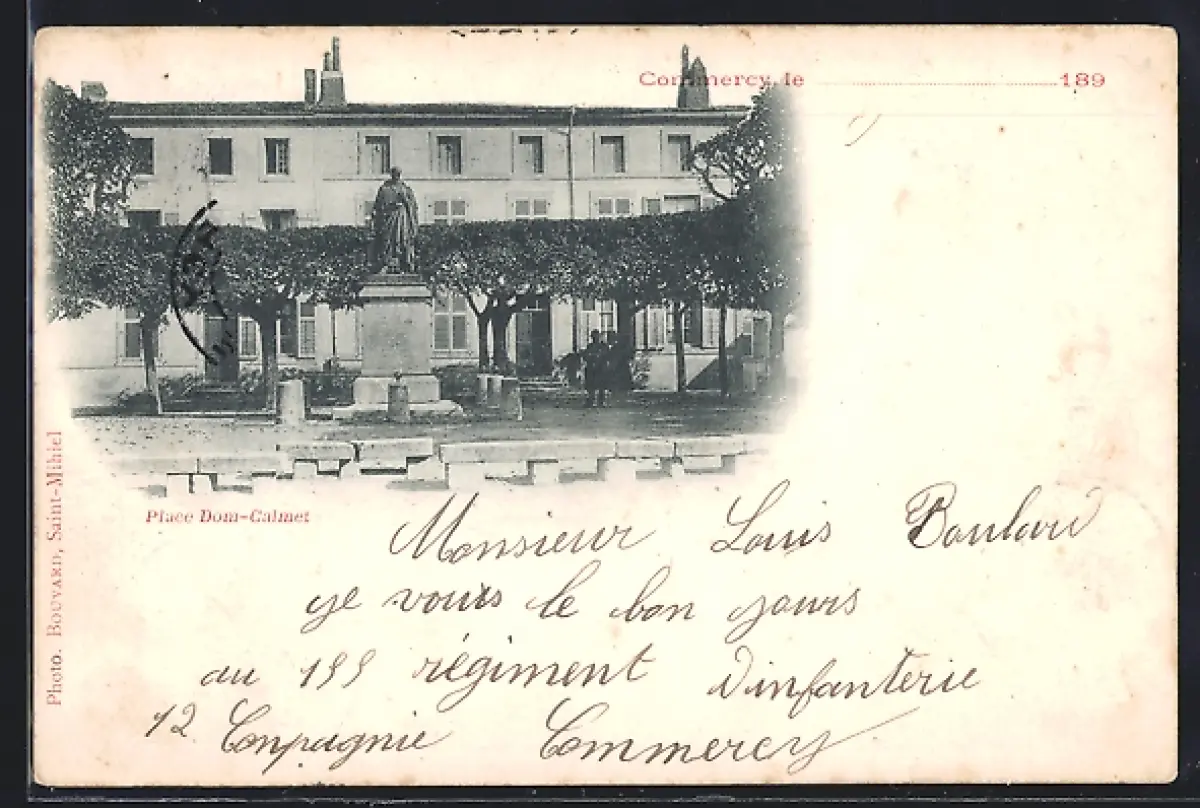 Commercy, le 189
Place Dom-Calmet
Photo. BOUVARD, Saint-Mihiel
Monsieur Louis Boulard
ge vouis le bon yours
au 155 régiment d'infanterie
12 Conpagnie Commercy